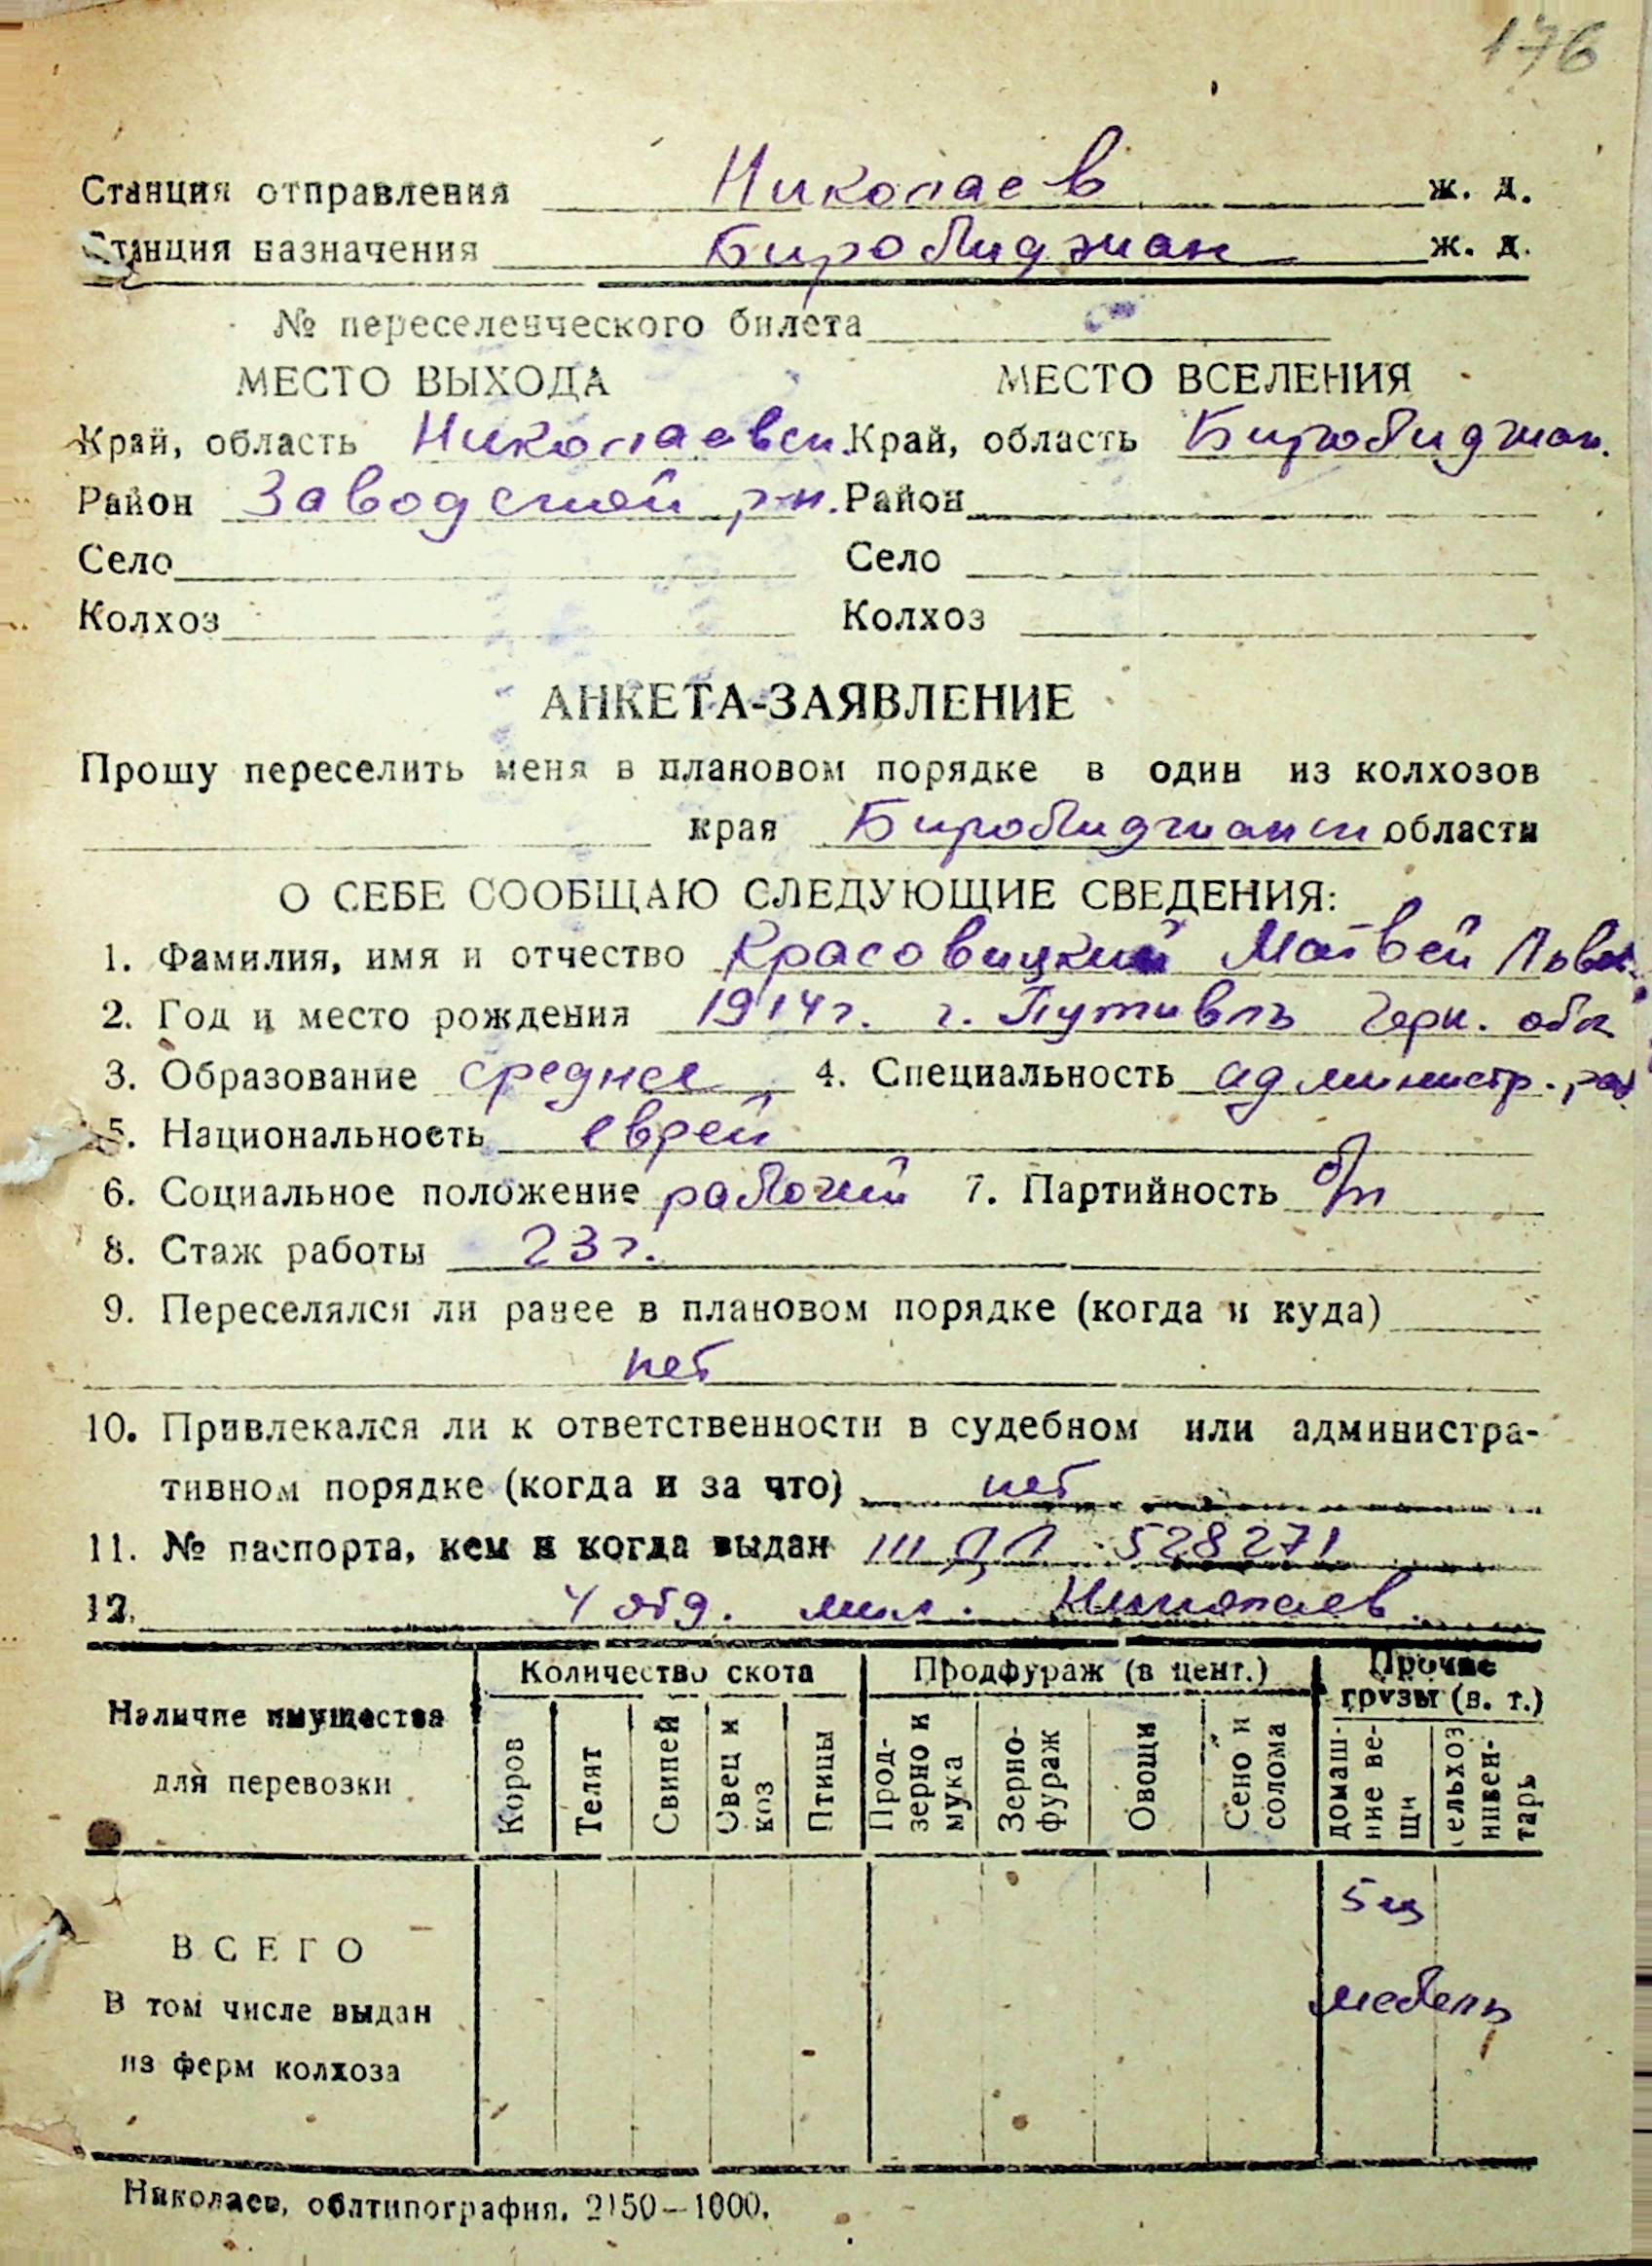 176
Станция отправления Николаев ж. д.
Станция назначения Биробиджан ж. д.
№ переселенческого билета
МЕСТО ВЫХОДА МЕСТО ВСЕЛЕНИЯ
Край, область Николаевск. Край, область Биробиджан.
Район Заводской р-н. Район
Село Село
Колхоз Колхоз
АНКЕТА-ЗАЯВЛЕНИЕ
Прошу переселить меня в плановом порядке в один из колхозов
края Биробиджанск области
О СЕБЕ СООБЩАЮ СЛЕДУЮЩИЕ СВЕДЕНИЯ:
1. Фамилия, имя и отчество Красовицкий Матвей Льв.
2. Год и место рождения 1914 г. г. Путивль Черн. обл
3. Образование среднее 4. Специальность администр. раб
5. Национальность еврей
6. Социальное положение рабочий 7. Партийность б/п
8. Стаж работы 23 г.
9. Переселялся ли ранее в плановом порядке (когда и куда)
нет
10. Привлекался ли к ответственности в судебном или администра-
тивном порядке (когда и за что) нет
11. № паспорта, кем и когда выдан 528271
12. 4 отд. мил. Николаев
Наличие имущества для перевозки Количество скота Продфураж (в цент.) Прочие грузы (в. т.)
Коров Телят Свиней Овец и коз Птицы Прод-зерно и мука Зерно-фураж Овощи Сено и солома домаш-ние ве-щи сельхоз инвен-тарь
ВСЕГО 5 ц
В том числе выдан мебель
из ферм колхоза
Николаев, облтипография. 2150—1000.